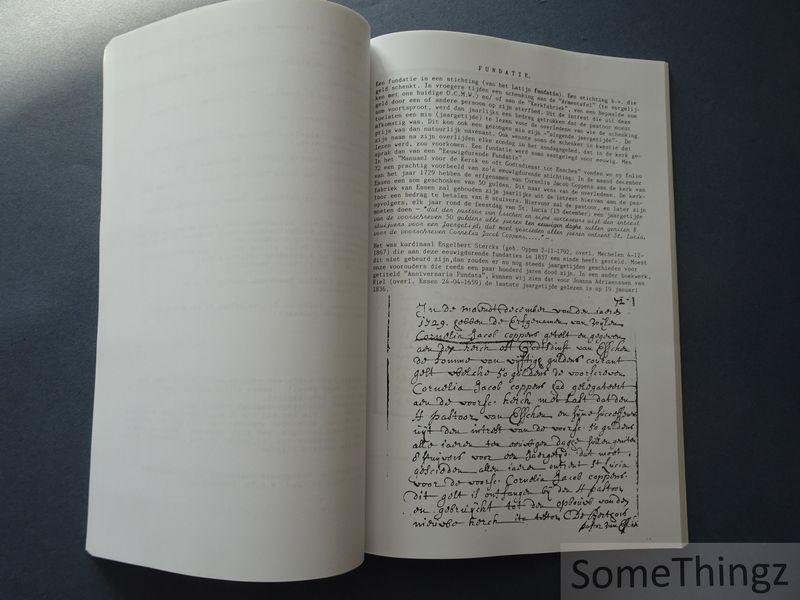 FUNDATIE.
Een fundatie is een stichting (van het Latijn fundatia). Een stichting b.v. die
geld schenkt. In vroegere tijden een schenking aan de "Armentafel" (te vergelij-
ken met ons huidige O.C.M.W.) en/ of aan de "Kerkfabriek", van een bepaalde som
geld door een of andere persoon op zijn sterfbed. Uit de intrest die uit deze
som voortsproot, werd dan jaarlijks een bedrag getrokken dat de pastoor moest
toelaten een mis (jaargetijde) te lezen voor de overledene van wie de schenking
afkomstig was. Dit kon ook een gezongen mis zijn "singende jaargetijde". De
prijs was dan natuurlijk navenant. Ook wenste soms de schenker in kwestie dat
zijn naam na zijn overlijden elke zondag in het zondagsgebed, dat in de kerk ge-
lezen werd, zou voorkomen. Een fundatie werd soms vastgelegd voor eeuwig. Men
sprak dan van een "Eeuwigdurende Fundatie".
In het "Manuael voor de Kerck en oft Godtsdienst tot Esschen" vonden we op folio
72 een prachtig voorbeeld van zo'n eeuwigdurende stichting. In de maand december
van het jaar 1729 hebben de erfgenamen van Cornelia Jacob Coppens aan de kerk van
Essen een som geschonken van 50 gulden. Dit naar wens van de overledene. De kerk-
fabriek van Essen zal gehouden zijn jaarlijks uit de intrest hiervan aan de pas-
toor een bedrag te betalen van 8 stuivers. Hiervoor zal de pastoor, en later zijn
opvolgers, elk jaar rond de feestdag van St. Lucia (13 december) een jaargetijde
moeten doen - "dat den pastoor van Esschen en sijne successeurs uijt den intrest
van de voorschreven 50 guldens alle jaeren ten eeuwigen daghe sullen genieten 8
stuijvers voor een Jaergetijd, dat moet geschieden alle jaeren ontrent St. Lucia,
voor de voorschreven Cornelia Jacob Coppens....." -.
Het was kardinaal Engelbert Sterckx (geb. Oppem 2-11-1792, overl. Mechelen 4-12-
1867) die aan deze eeuwigdurende fundaties in 1837 een einde heeft gesteld. Moest
dit niet gebeurd zijn, dan zouden er nu nog steeds jaargetijden geschieden voor
onze voorouders die reeds een paar honderd jaren dood zijn. In een ander boekwerk,
getiteld "Anniversaria Fundata", kunnen wij zien dat voor Joanna Adriaenssen van
Kiel (overl. Essen 24-04-1659) de laatste jaargetijde gelezen is op 19 januari
1836.
72-
In de maendt december van den iaere
1729. hebben de Erfgenamen van wijlen
Cornelia Jacob coppens getelt en gegeven
aen dese kerck oft Godtsdinst van Esschen
de somme van vijftigh guldens courant
gelt welcke 50 guldens de voorschreven
Cornelia Jacob coppens had gelegateert
aen de voors. kerck met last dat den
H pastoor van Esschen en sijne successeurs
uijt den intrest van de voors. 50 guldens
alle iaeren ten eeuwigen dage sullen genieten
8 stuijvers voor een Jaergetijd dat moet
geschieden allen iaeren ontrent St Lucia
voor de voors. Cornelia Jacob coppens.
dit gelt is ontfangen bij den H pastoor
en gebruijckt tot den opbouw van den
nieuwe kerck ita testor C De Hertogh
pastor van Essche
SomeThingz